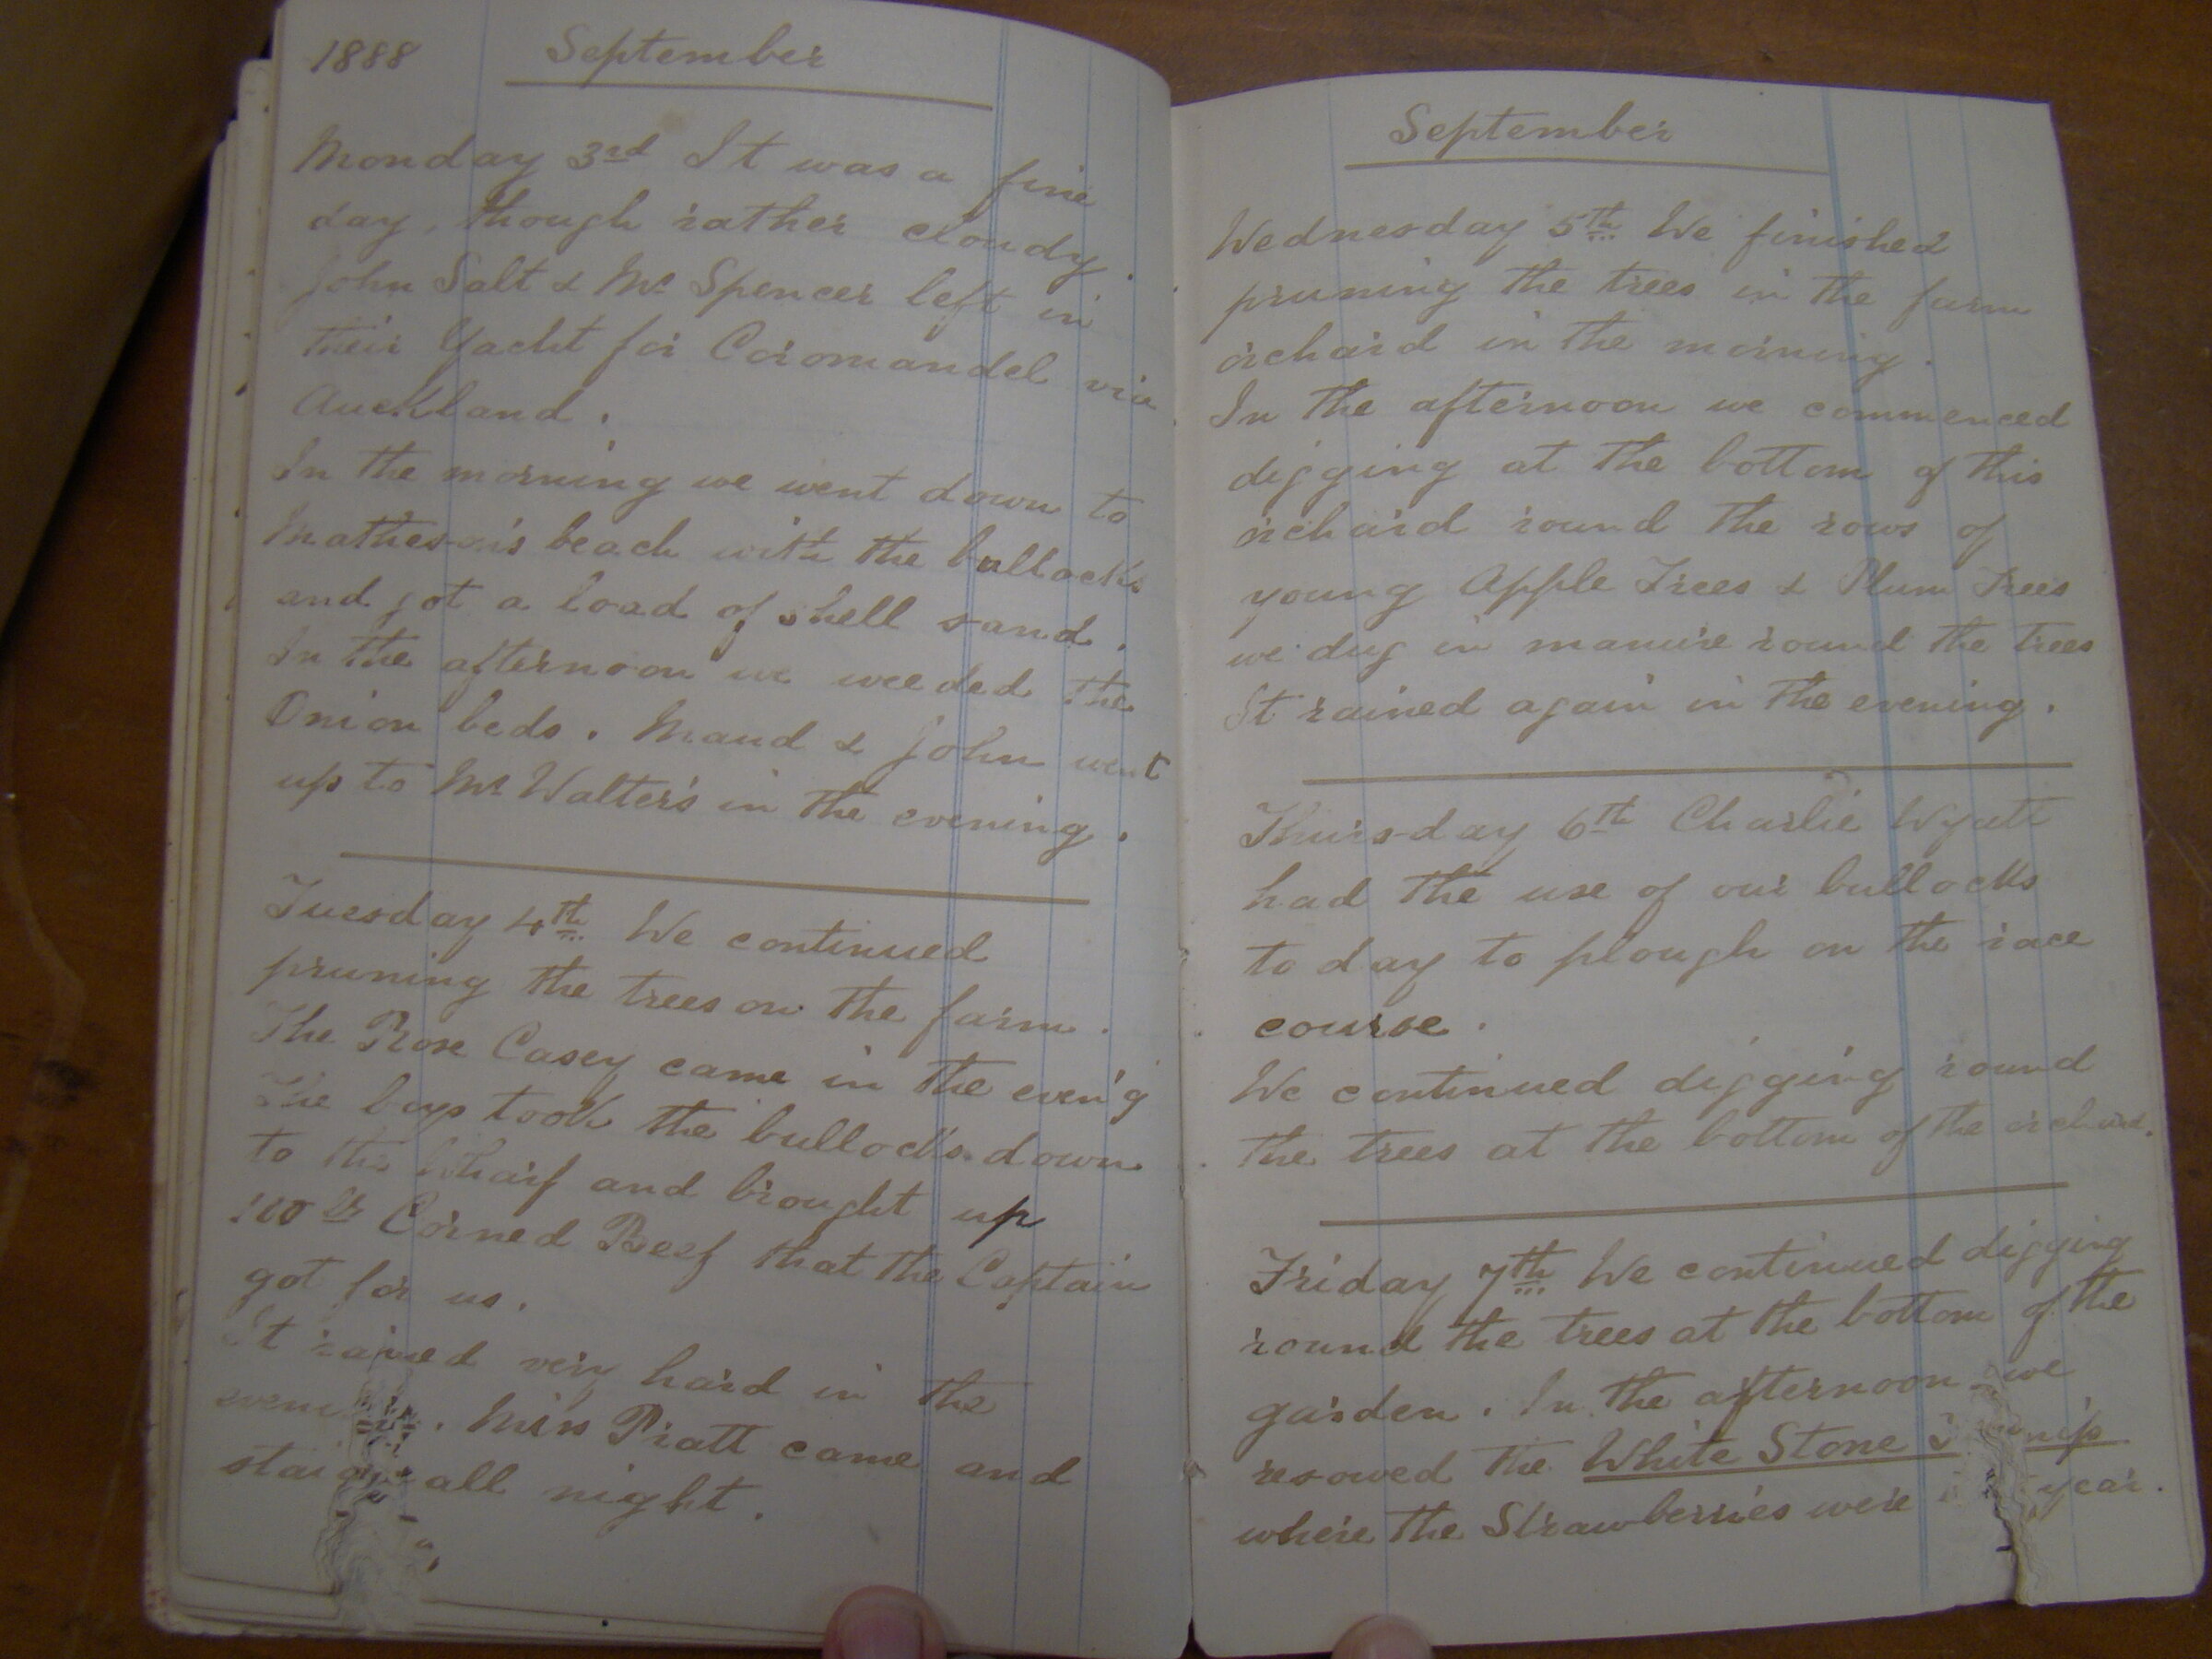 1888 September
Monday 3rd It was a fine
day, though rather cloudy.
John Salt & Mr Spencer left in
their Yacht for Coromandel via
Auckland.
In the morning we went down to
Matheson's beach with the bullocks
and got a load of shell sand.
In the afternoon we weeded the
Onion beds. Maud & John went
up to Mr Walter's in the evening.
Tuesday 4th We continued
pruning the trees on the farm.
The Rose Casey came in the even'g
The boys took the bullocks down
to the Wharf and brought up
100 lb Corned Beef that the Captain
got for us.
It rained very hard in the
. Miss Pratt came and
all night.
September
Wednesday 5th We finished
pruning the trees in the farm
orchard in the morning.
In the afternoon we commenced
digging at the bottom of this
orchard round the rows of
young Apple Trees & Plum Trees
we dug in manure round the trees
It rained again in the evening.
Thursday 6th Charlie Wyatt
had the use of our bullocks
to day to plough on the race
course.
We continued digging round
the trees at the bottom of the orchard.
Friday 7th We continued digging
round the trees at the bottom of the
garden. In the afternoon we
resowed the White Stone
where the Strawberries were year.